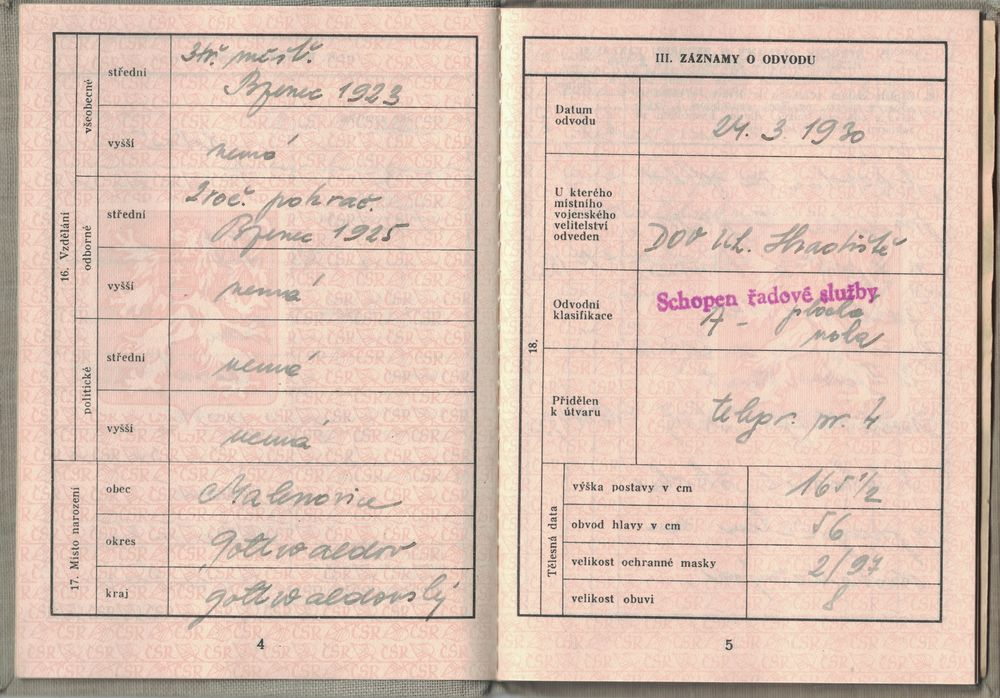 16. Vzdělání
všeobecné
střední
3tř. měšť.
Bzenec 1923
vyšší
nemá
odborné
střední
2roč. pokrač.
Bzenec 1925
vyšší
nemá
politické
střední
nemá
vyšší
nemá
17. Místo narození
obec
Malenovice
okres
Gottwaldov
kraj
gottwaldovský
4
III. ZÁZNAMY O ODVODU
18.
Datum
odvodu
24. 3. 1930
U kterého
místního
vojenského
velitelství
odveden
DOV Uh. Hradiště
Odvodní
klasifikace
Schopen řadové služby
A - plochá
noha
Přidělen
k útvaru
telegr. pr. 4
Tělesná data
výška postavy v cm
165 1/2
obvod hlavy v cm
56
velikost ochranné masky
2/97
velikost obuvi
8
5